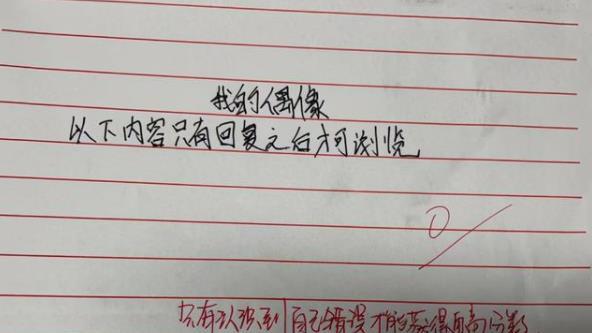 我的偶像
以下内容只有回复之后才可浏览
0
只有认识到自己错误才能获得更高分数